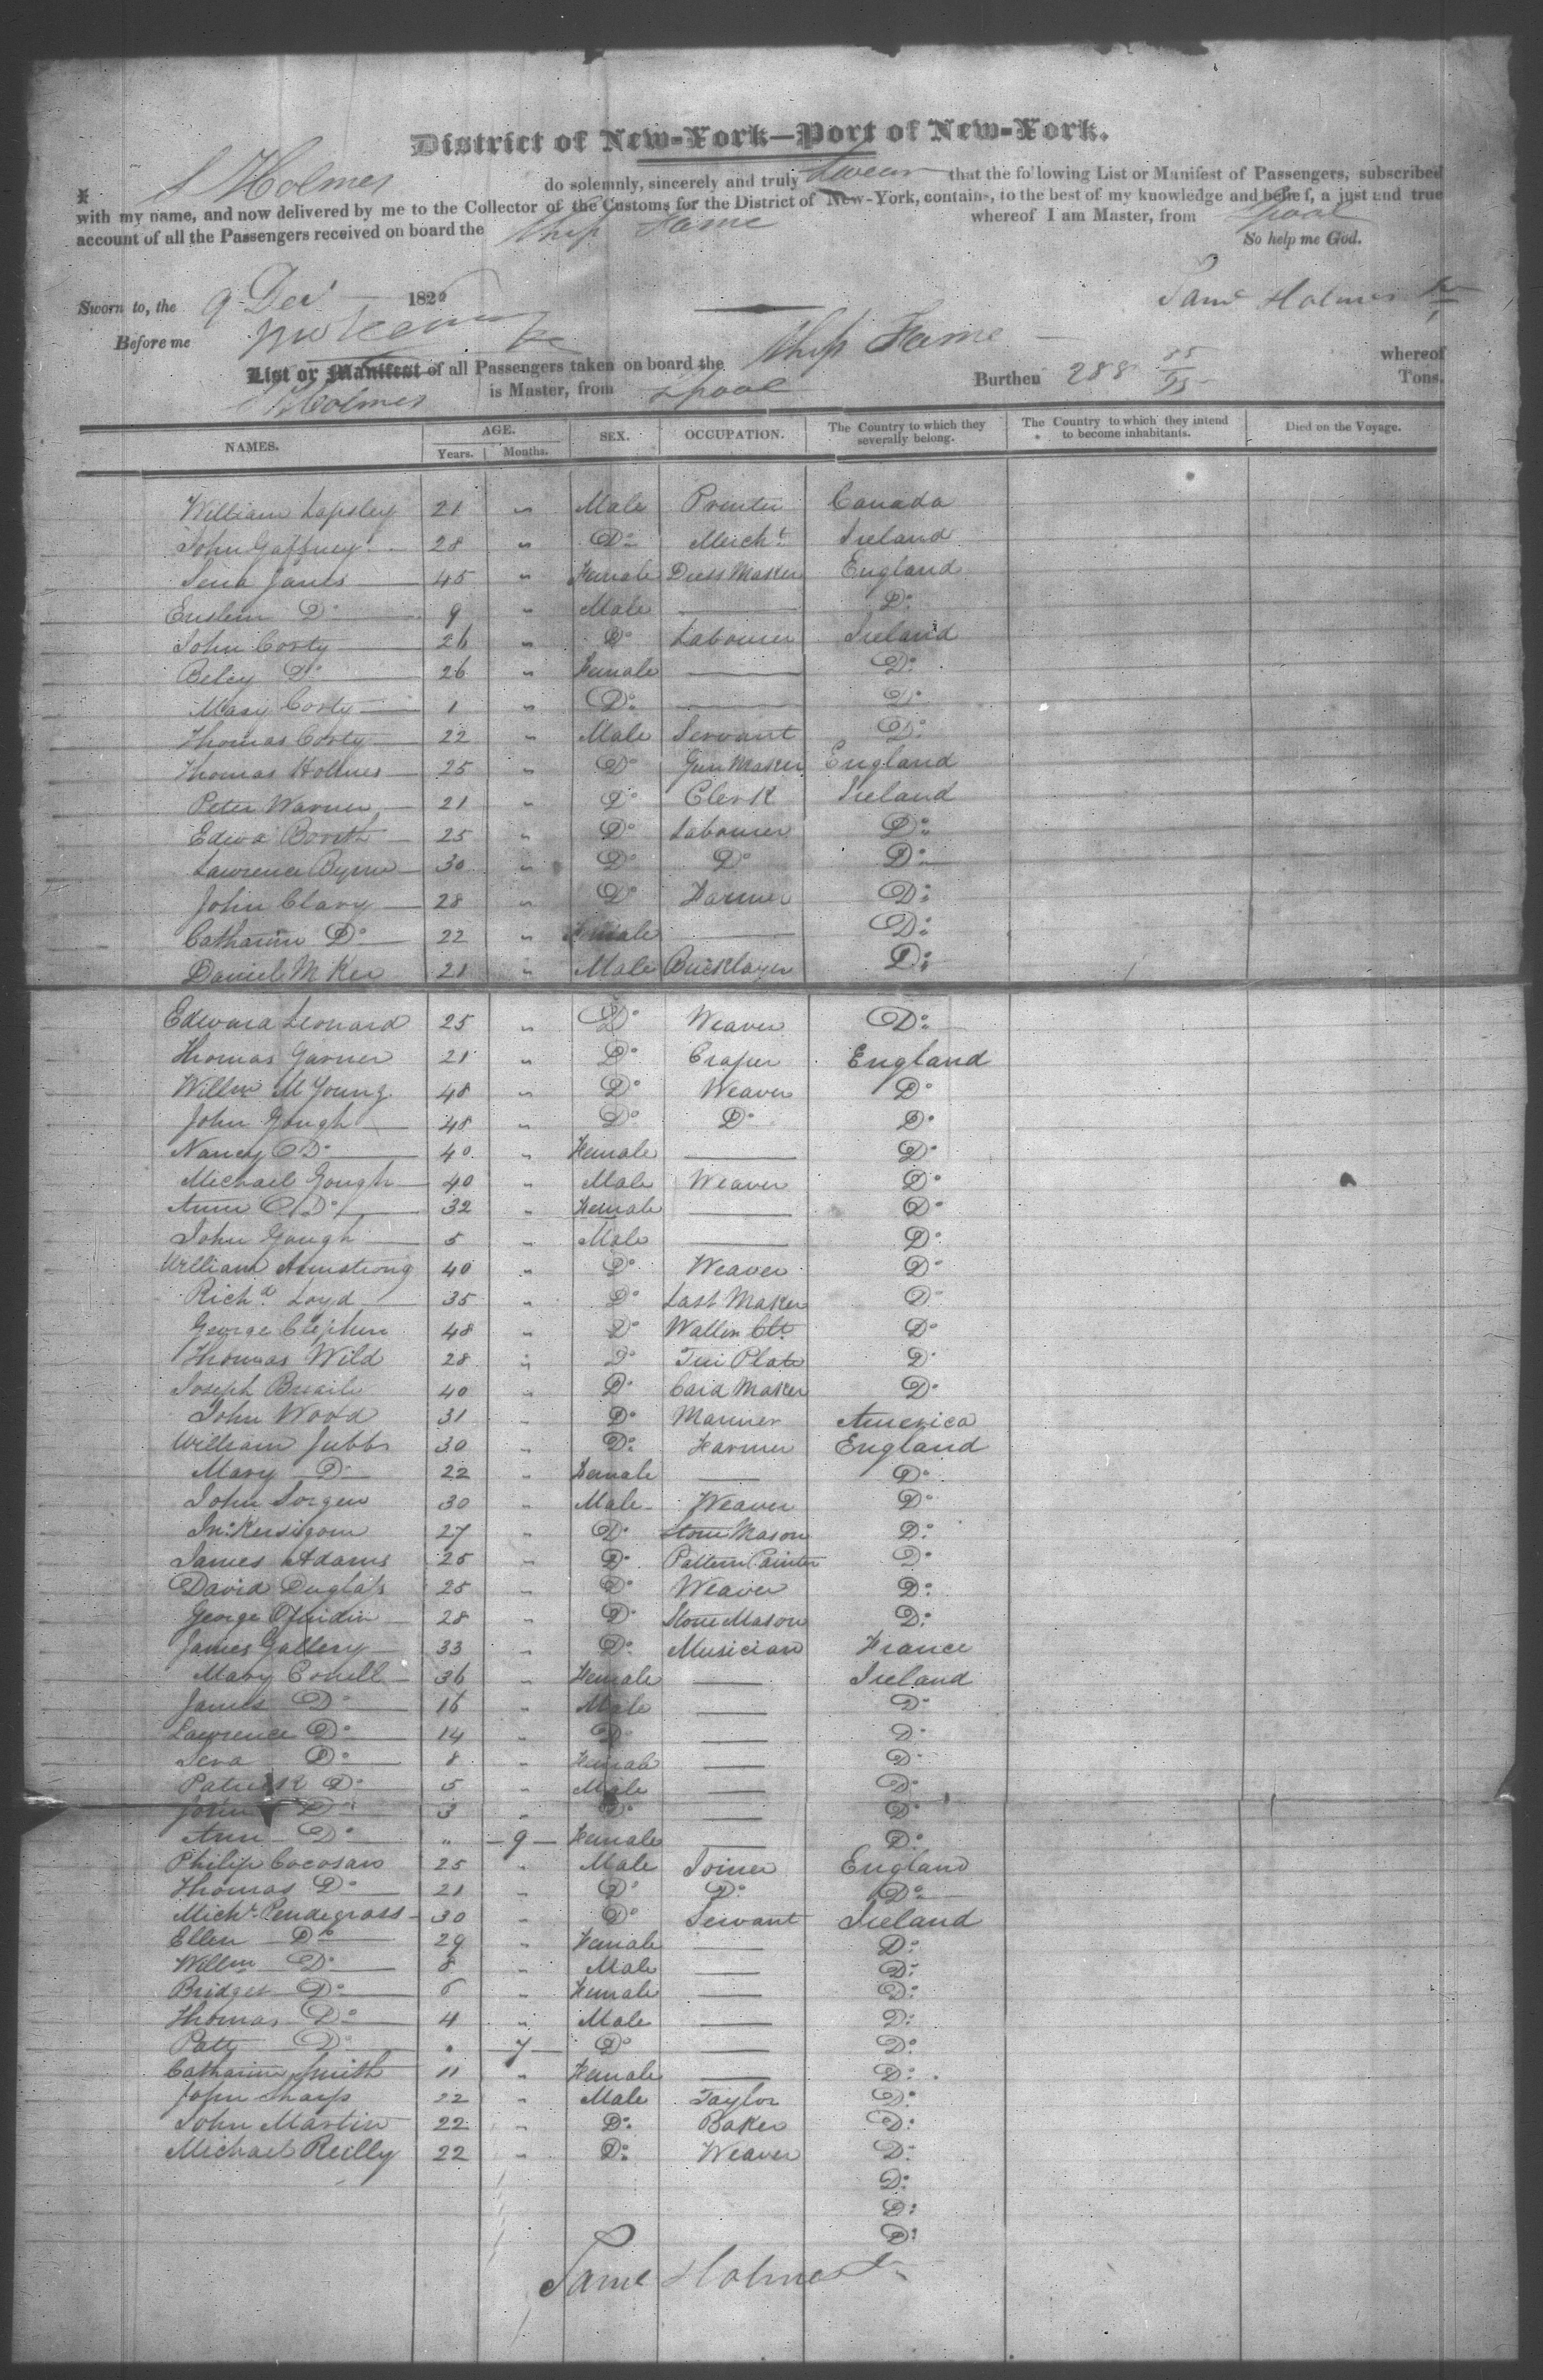 District of New-York—Port of New-York.
S Holmes do solemnly, sincerely and truly swear that the following List or Manifest of Passengers, subscribed
with my name, and now delivered by me to the Collector of the Customs for the District of New-York, contains, to the best of my knowledge and belief, a just and true
account of all the Passengers received on board the Ship Fame whereof I am Master, from Lpool
So help me God.
Sworn to, the 9 Decr 182
Saml Holmes Jr
Before me
List or Manifest of all Passengers taken on board the Ship Fame whereof
S Holmes is Master, from Lpool Burthen 288 Tons.
NAMES. AGE. Years. Months. SEX. OCCUPATION. The Country to which they severally belong. The Country to which they intend to become inhabitants. Died on the Voyage.
William Lapsley 21 " Male Printer Canada
John Gaffney 28 " Do Mercht Ireland
Sena Janes 45 " Female Dress Maker England
Do 9 " Male — Do
John Corty 26 " Do Labourer Ireland
Betey Do 26 " Female — Do
Mary Corty 1 " Do — Do
Thomas Corty 22 " Male Servant Do
Thomas Holmes 25 " Do Gun Maker England
Peter Warner 21 " Do Clerk Ireland
Edwd 25 " Do Labourer Do
Lawrence Byrne 30 " Do Do Do
John Clary 28 " Do Farmer Do
Catharine Do 22 " Female — Do
Daniel McKee 21 " Male Bricklayer Do
Edward Leonard 25 " Do Weaver Do
Thomas Garner 21 " Do Craper England
Willm McYoung 48 " Do Weaver Do
John Gough 48 " Do Do Do
Nancy Do 40 " Female — Do
Michael Gough 40 " Male Weaver Do
Ann Do 32 " Female — Do
John Gough 5 " Male — Do
William Armstrong 40 " Do Weaver Do
Richd Loyd 35 " Do Last Maker Do
George Clephen 48 " Do Do
Thomas Wild 28 " Do Tin Plate Do
Joseph 40 " Do Card Maker Do
John Wood 31 " Do Mariner America
William Jubbs 30 " Do Farmer England
Mary Do 22 " Female — Do
John Sorgen 30 " Male Weaver Do
Jno 27 " Do Stone Mason Do
James Adams 25 " Do Pattern Painter Do
David Duglass 25 " Do Weaver Do
George 28 " Do Stone Mason Do
James Gallery 33 " Do Musician France
Mary Conell 36 " Female — Ireland
James Do 16 " Male — Do
Lawrence Do 14 " Do — Do
Do 8 " Female — Do
Patrick Do 5 " Male — Do
John Do 3 " Do — Do
Ann Do " 9 Female — Do
Philip Cocosan 25 " Male Joiner England
Thomas Do 21 " Do Do Do
Michl Pendegrass 30 " Do Servant Ireland
Ellen Do 29 " Female — Do
Willm Do 8 " Male — Do
Bridget Do 6 " Female — Do
Thomas Do 4 " Male — Do
Patt Do " 7 Do — Do
Catharine Smith 11 " Female — Do
John Sharp 22 " Male Taylor Do
John Martin 22 " Do Baker Do
Michael Reilly 22 " Do Weaver Do
Do
Do
Do
Saml Holmes Jr